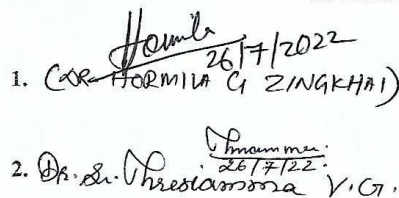 Hormila
26/7/2022
1. (DR HORMILA G ZINGKHAI)
26/7/22.
2. Dr. Sr. Thresiamma V.G.